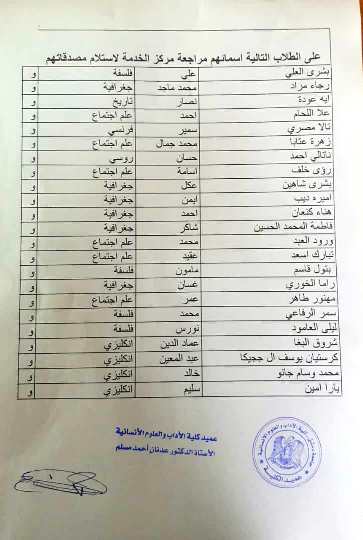 على الطلاب التالية اسمائهم مراجعة مركز الخدمة لاستلام مصدقاتهم
بشرى العلي علي فلسفة و
رجاء مراد محمد ماجد جغرافية و
ايه عودة نصار تاريخ و
علا اللحام احمد علم اجتماع و
تالا مصري سمير فرنسي و
زهرة عتابا محمد جمال علم اجتماع و
ناتالي احمد حسان روسي و
رؤى خلف اسامة علم اجتماع و
بشرى شاهين عكل جغرافية و
اميره ديب ايمن جغرافية و
هناء كنعان احمد جغرافية و
فاطمة المحمد الحسين شاكر جغرافية و
ورود العبد محمد علم اجتماع و
تبارك اسعد عقيد علم اجتماع و
بتول قاسم مامون فلسفة و
راما الخوري غسان جغرافية و
مهتور طاهر عمر علم اجتماع و
سمر الرفاعي محمد فلسفة و
ليلى العامود نورس فلسفة و
شروق البغا عماد الدين انكليزي و
كرستيان يوسف ال ججيكا عبد المعين انكليزي و
محمد وسام جانو خالد انكليزي و
يارا امين سليم انكليزي و
عميد كلية الآداب والعلوم الأنسانية
الأستاذ الدكتور عدنان أحمد مسلم
عميد الكلية